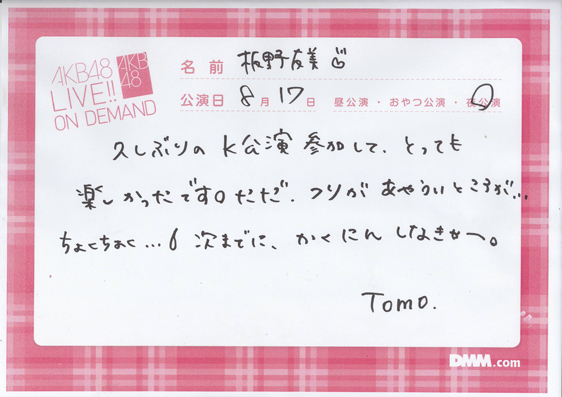 AKB48
LIVE!!
ON DEMAND
AKB
48
名前 板野友美
公演日 8月17日 昼公演・おやつ公演・夜公演
久しぶりのK公演参加して、とっても
楽しかったです。ただ、フリがあやういところが...
ちょくちょく...。次までに、かくにんしなきゃー。
Tomo.
DMM.com